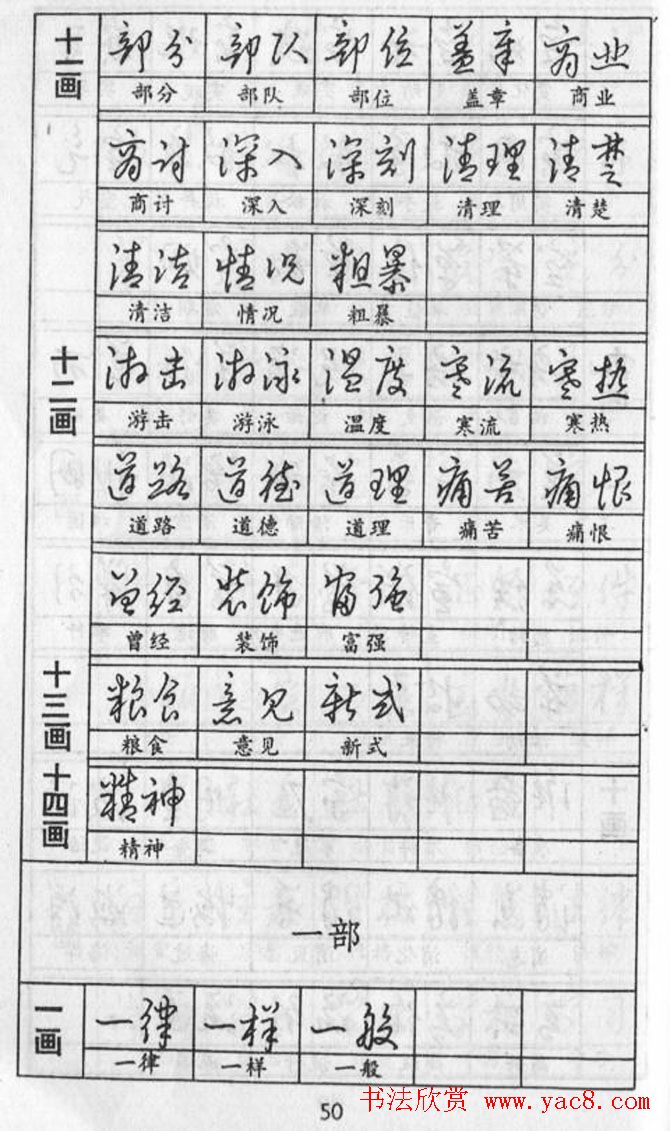 十一画
部分 部队 部位 盖章 商业
部分 部队 部位 盖章 商业
商讨 深入 深刻 清理 清楚
商讨 深入 深刻 清理 清楚
清洁 情况 粗暴
清洁 情况 粗暴
十二画
游击 游泳 温度 寒流 寒热
游击 游泳 温度 寒流 寒热
道路 道德 道理 痛苦 痛恨
道路 道德 道理 痛苦 痛恨
曾经 装饰 富强
曾经 装饰 富强
十三画
粮食 意见 新式
粮食 意见 新式
十四画
精神
精神
一部
一画
一律 一样 一般
一律 一样 一般
50
书法欣赏 www.yac8.com